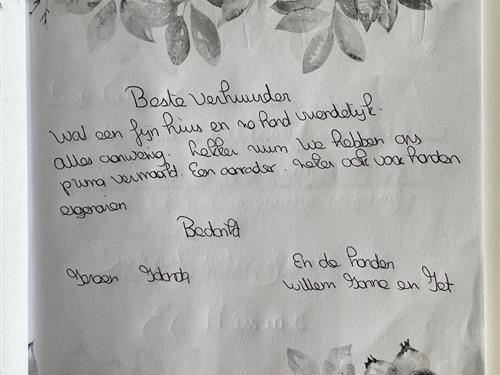 Beste Verhuurder
Wat een fijn huis en zo hond vriendelijk.
alles aanwezig. lekker ruim We hebben ons
prima vermaakt. Een aanrader. zeker ook voor honden
eigenaren
Bedankt
Jeroen
En de honden
willem en Jet